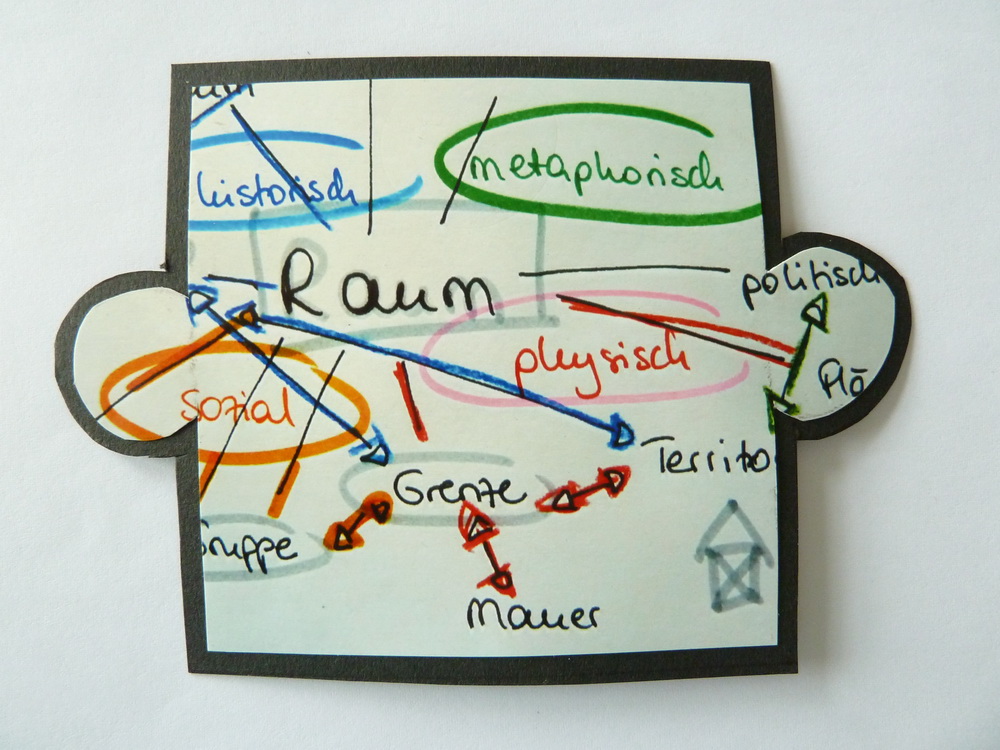 historisch
metaphorisch
Raum
politisch
physisch
Plä
sozial
Territo
Grenze
Gruppe
Mauer